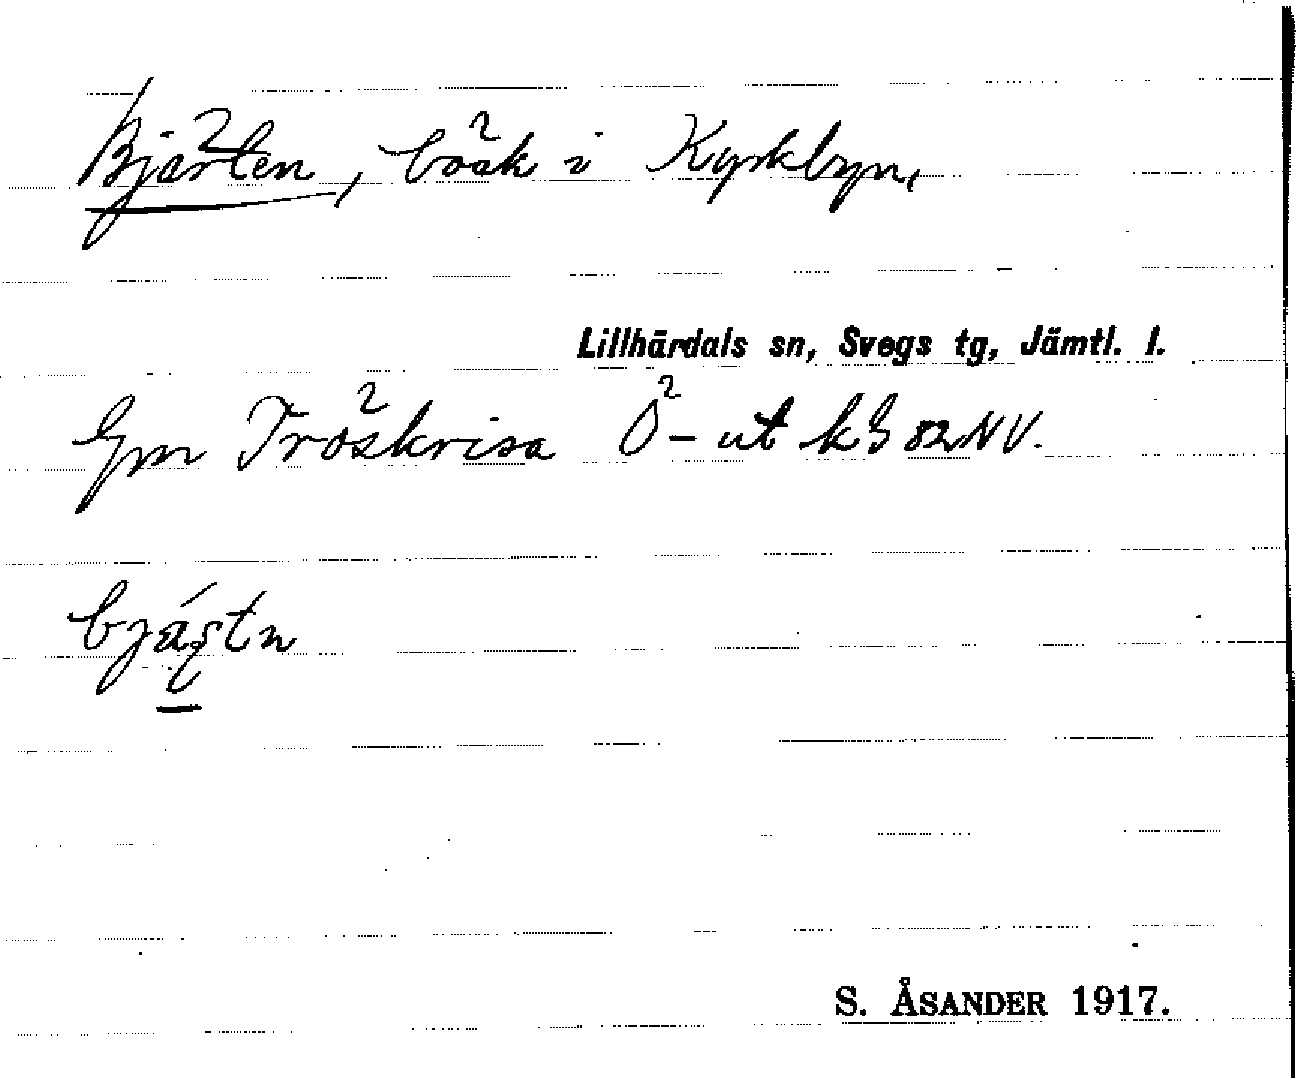 Bjärten, bäck i Kyrkbyn,
Lillhärdals sn, Svegs tg, Jämtl. l.
Gm Tröskrisa Ö - ut
bjäʂtn
S. ÅSANDER 1917.